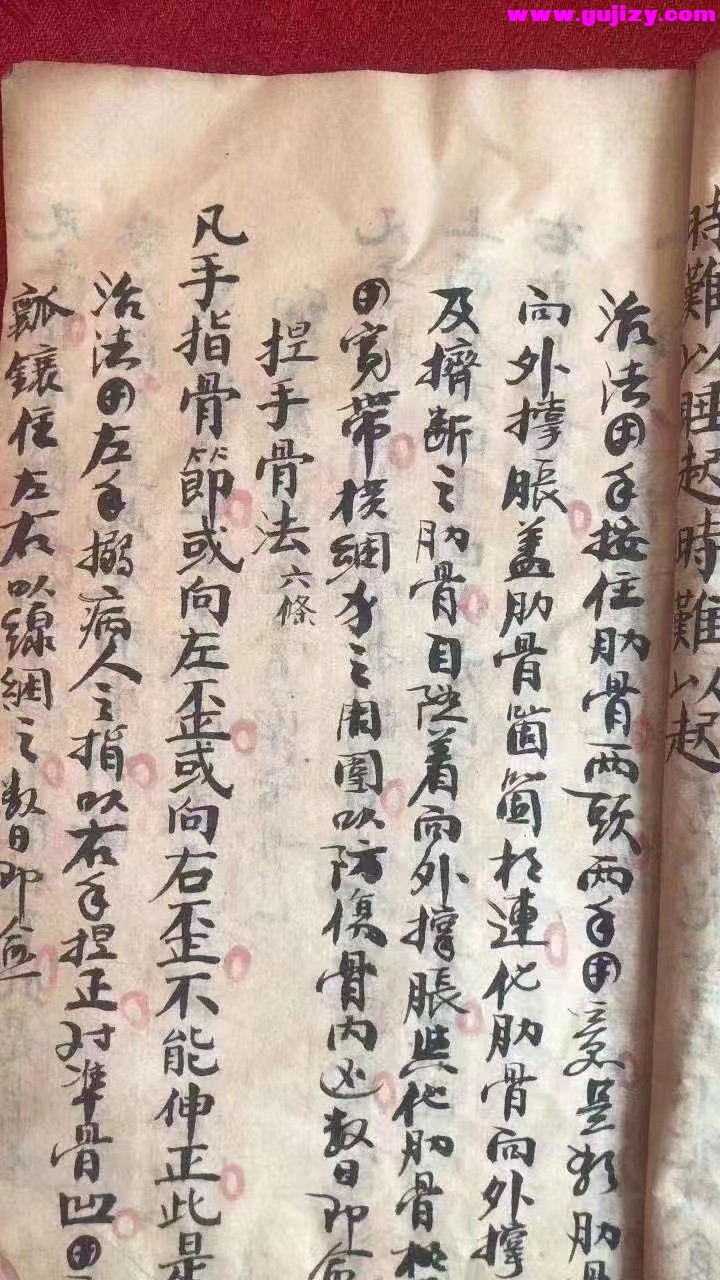 www.gujizy.com
時難以睡起時難以起
治法用手按住肋骨兩頭兩手用意是教肋骨
向外撐脹蓋肋骨箇箇相連他肋骨向外撐
及擠斷之肋骨自隨着向外撐脹與他肋骨相
用寬帶横綑身之周圍以防傷骨内迆数日即愈
捏手骨法六條
凡手指骨節或向左歪或向右歪不能伸正此是
治法用左手搦病人之指以右手捏正对準骨凹用
瓤鑲住左右以線綑之数日即愈